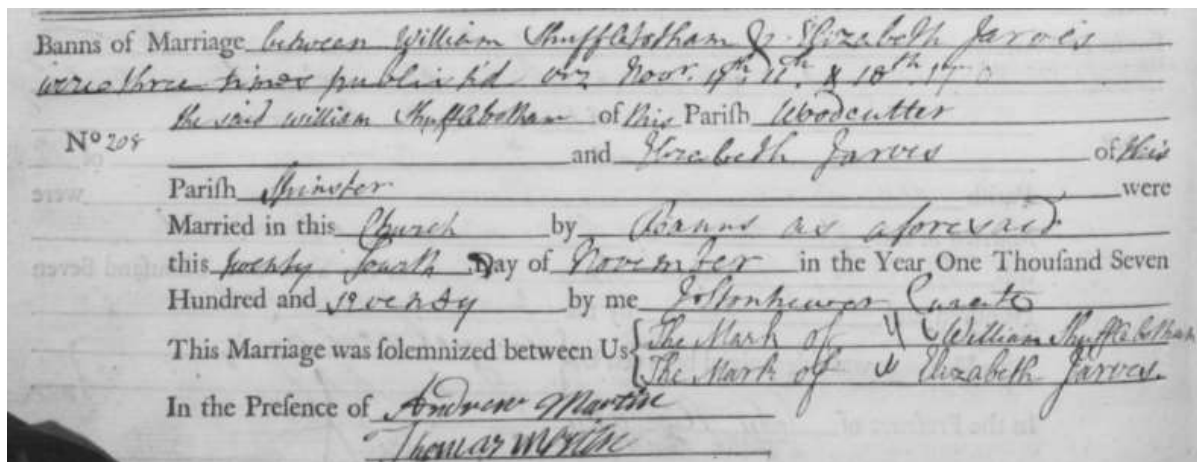 Banns of Marriage between William Shufflebotham & Elizabeth Jarves
were three times publish'd on Novr. 11th & 18th 17
the said William Shufflebotham of this Pariſh Woodcutter
No 208 and Elizabeth Jarves of this
Pariſh Spinster were
Married in this Church by Banns as aforesaid
this twenty fourth Day of November in the Year One Thouſand Seven
Hundred and by me Curate
This Marriage was ſolemnized between Us { The Mark of William Shufflebotham
The Mark of Elizabeth Jarves.
In the Preſence of Andrew Martin
Thomas